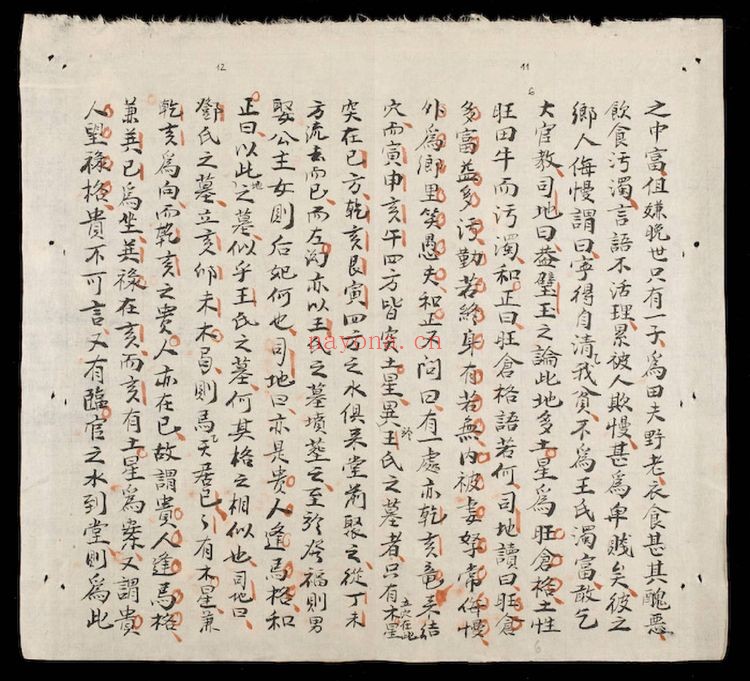 之中富但嫌晚世只有一子爲田夫野老衣食甚其醜惡
飲食污濁言語不活理累被人欺慢甚爲卑賤矣彼之
鄉人侮慢謂曰寧得自清我貧不爲王氏濁富敢乞
大官教司地曰荅璧玉之論此地多土星爲旺倉格土性
旺田牛而污濁和正曰旺倉格語若何司地讀曰旺倉
多富益多污勤若終身有若無內被妻孥常侮慢
外爲鄉里笑愚夫和正不問曰有一處亦乾亥竜來結
穴而寅申亥午四方皆突土星異於王氏之墓者只有木星
突在巳方乾亥艮寅四方之水俱來堂前聚之從丁未
方流去而已而左洵亦以王氏之墓墳葬之至於居福則男
娶公主女則后妃何也司地曰亦是貴人逢馬格和
正曰以此地之墓似乎王氏之墓何其格之相似也司地曰
鄧氏之墓立亥卯未木局則馬天居巳巳有木星兼
乾亥爲向而乾亥之貴人亦在巳故謂貴人逢馬格
兼英巳爲坐英祿在亥而亥有土星爲案又謂貴
人望祿格貴不可言又有臨官之水到堂則爲此
立穴在此
11
12
6
6
nayona.cn